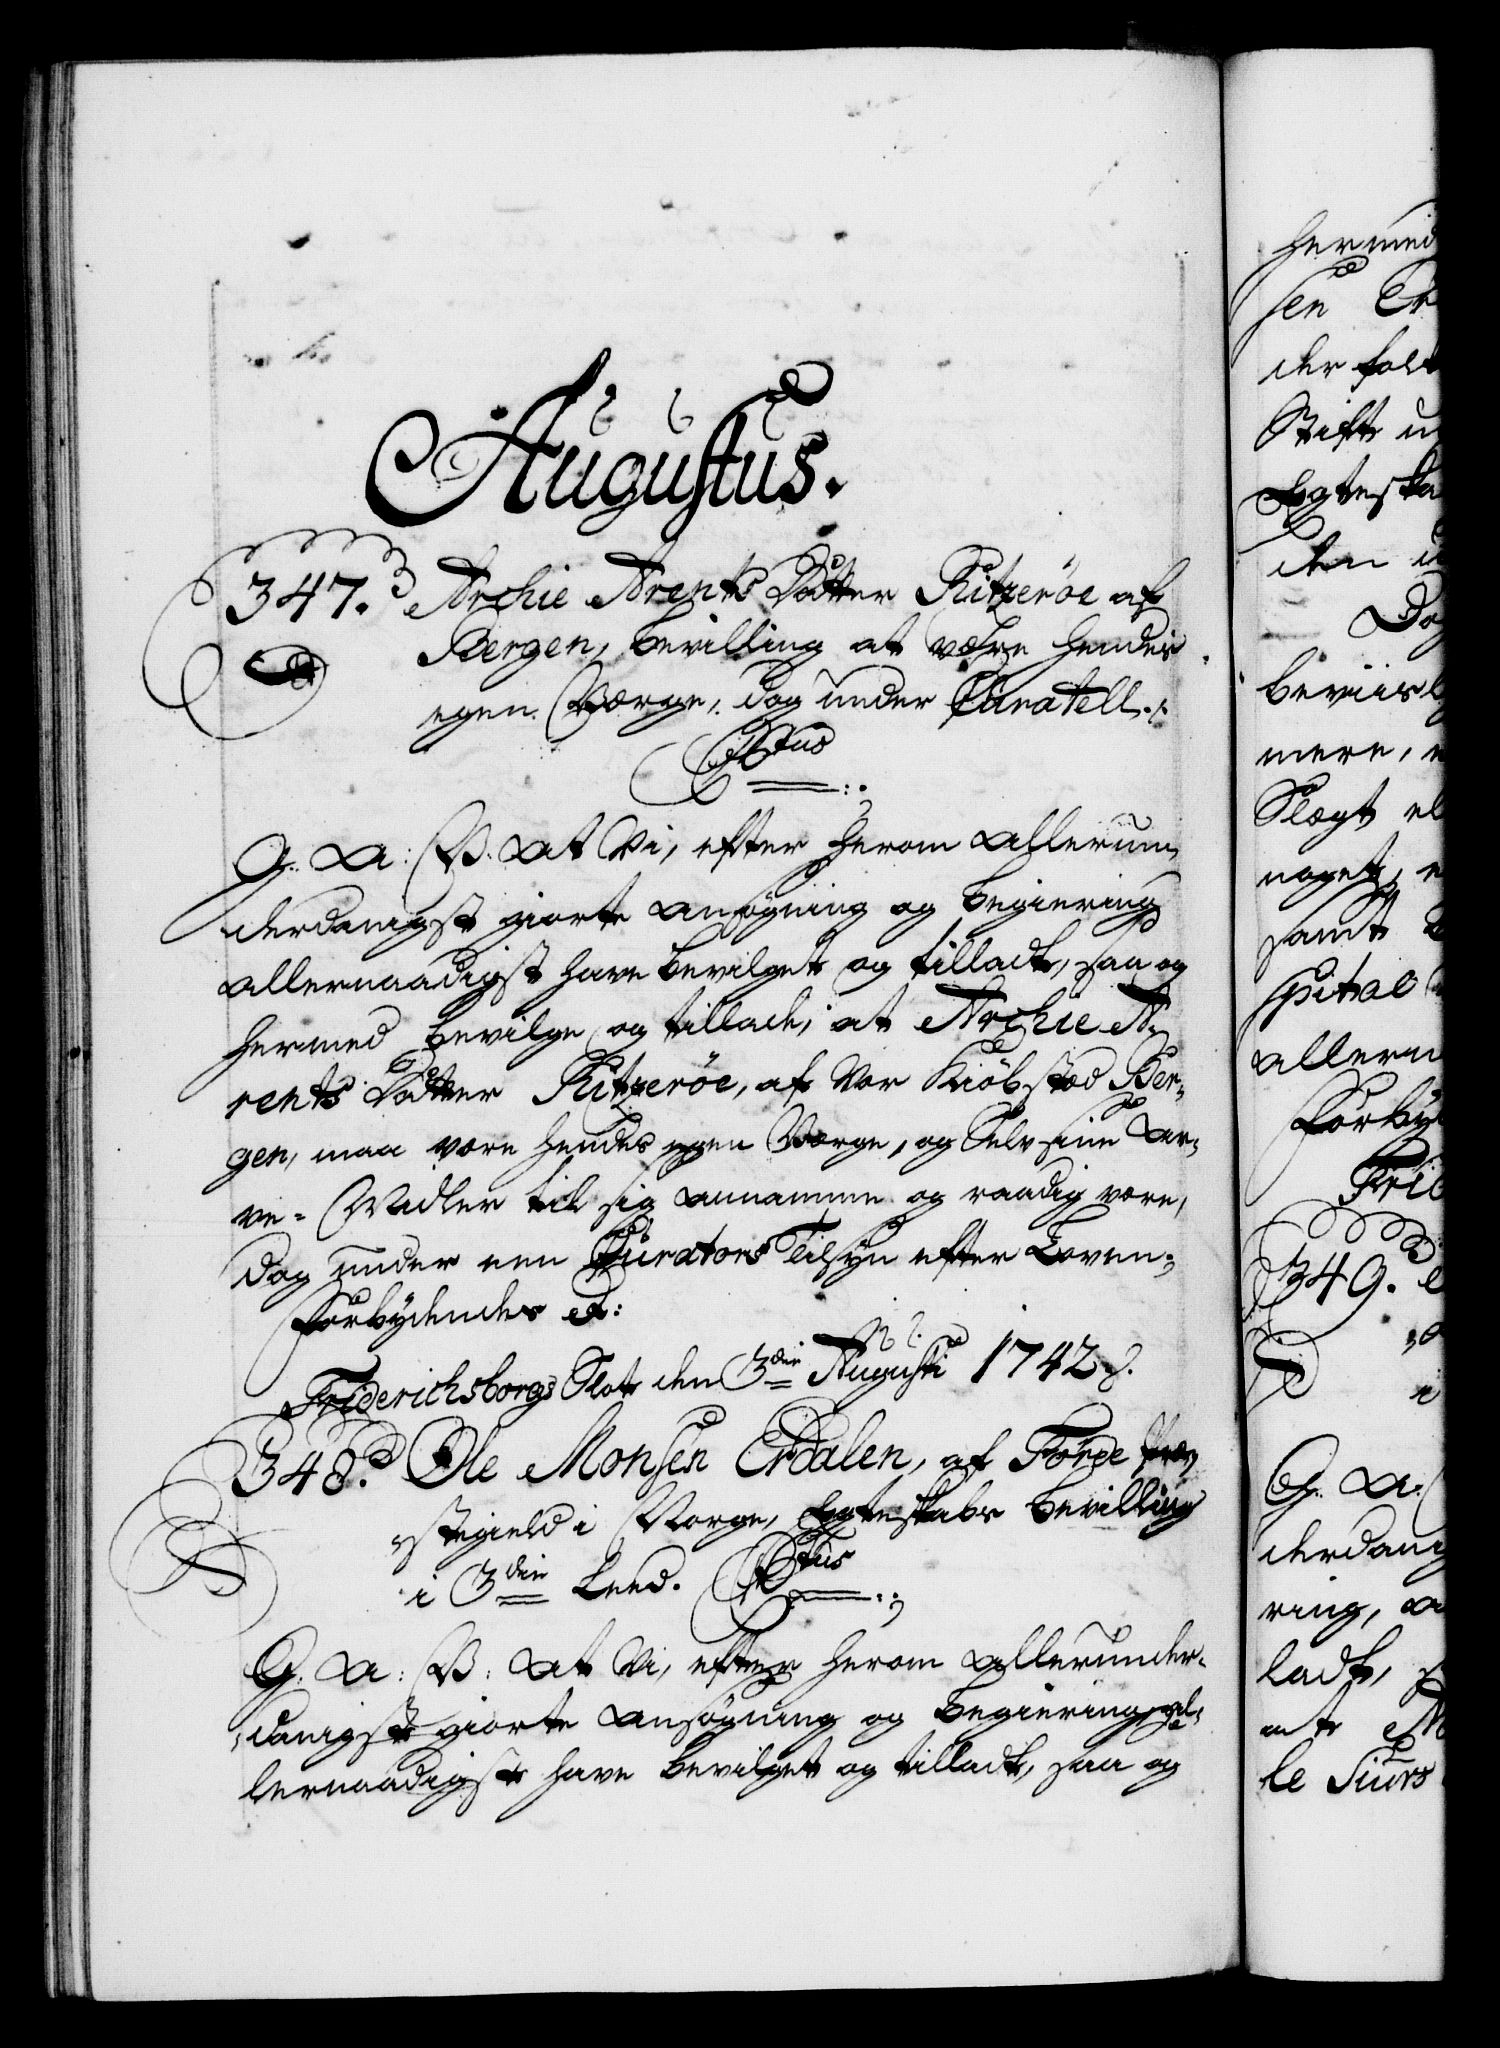 Augustus.
347. Archie Arents Datter Ritzerøe af
Bergen, Bevilling at være hendes
egen Værge, dog under Curatell.
C 5tus
G. A: V. At Vi, efter herom allerun-
derdanigst giorte Ansøgning og Begiering
allernaadigst have bevilget og tilladt, saa og
hermed bevilge og tillade, at Archie A-
rents Datter Ritzerøe, af Vor Kiøbstæd Ber-
gen, maa være hendes egen Værge, og Selv sine Ar-
ve-Midler til sig annamme og raadig være,
dog under een Curators Tilsyn efter Loven;
Forbydendes &:
Friderichsborgs Slot den 3die Augusti 1742.
348. Ole Monsen Erdalen, af Førde Præ-
stegield i Norge, Egteskabs Bevilling
i 3die Leed.
G. A: V: At Vi, efter herom allerunder-
danigst giorte Ansøgning og Begiering, al-
lernaadigst have bevilget og tilladt, saa og
hermed
sen Er
der fol
Stift u
Egteska
den u
Dog
beviisl
mere, e
Slægt el
noget, e
samt
spital
allern
Forby
Frid
349.
G. A:
derdanig
ring, a
ladt, s
at M
le Siurs